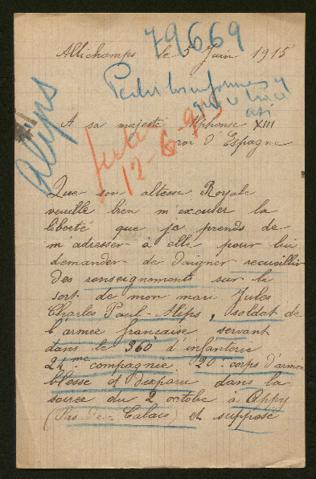 79669
Allichamps le 5 Juin 1915
Pedir informes y
Alips
A sa majesté Alphonse XIII
roi d'Espagne
12-6-915
Que son altesse Royale
veuille bien m'excuser la
liberté que je prends de
m'adresser à elle pour lui
demander de daigner recueillir
des renseignements sur le
sort de mon mari Jules
Charles Paul Alips, soldat de
l'armée française servant
dans le 360 d'infanterie
24me compagnie 20 corps d'armée
blessé et disparu dans la
soirée du 2 octobre à Oppy
(Pas de Calais) et supposé